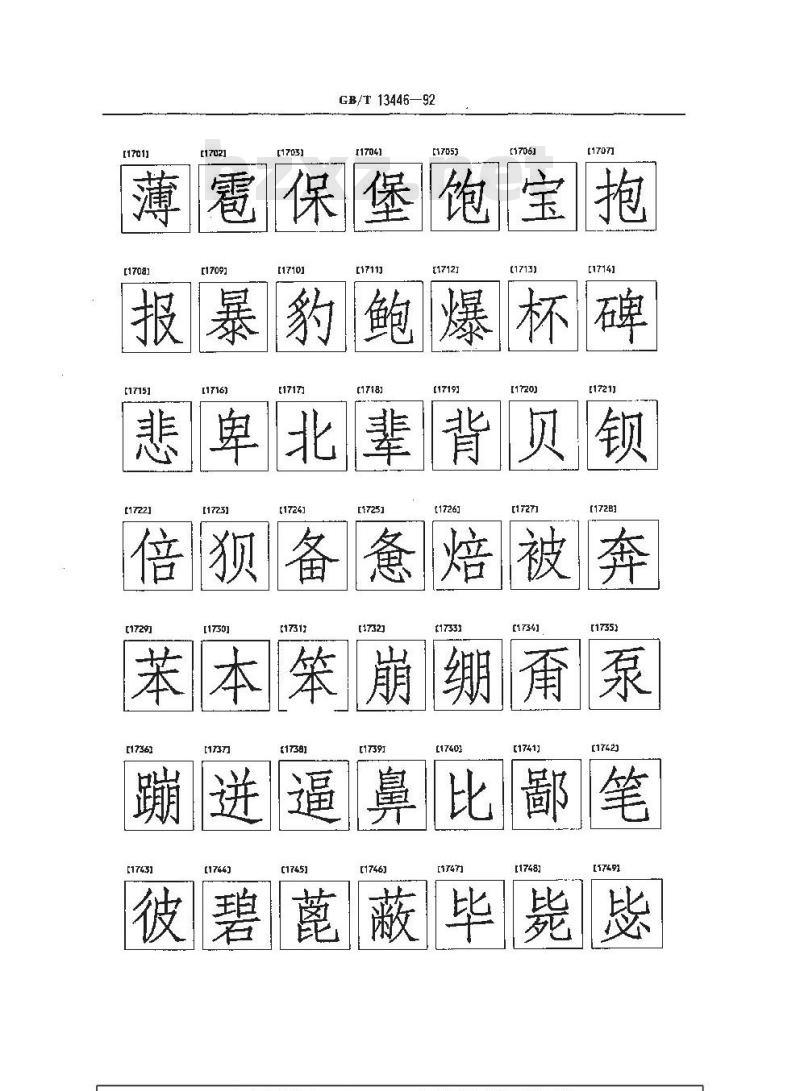 GB/T 13446—92
[1701] [1702] [1703] [1704] [1705] [1706] [1707]
薄 雹 保 堡 饱 宝 抱
[1708] [1709] [1710] [1711] [1712] [1713] [1714]
报 暴 豹 鲍 爆 杯 碑
[1715] [1716] [1717] [1718] [1719] [1720] [1721]
悲 卑 北 辈 背 贝 钡
[1722] [1723] [1724] [1725] [1726] [1727] [1728]
倍 狈 备 惫 焙 被 奔
[1729] [1730] [1731] [1732] [1733] [1734] [1735]
苯 本 笨 崩 绷 甭 泵
[1736] [1737] [1738] [1739] [1740] [1741] [1742]
蹦 迸 逼 鼻 比 鄙 笔
[1743] [1744] [1745] [1746] [1747] [1748] [1749]
彼 碧 蓖 蔽 毕 毙 毖
bzxz.net